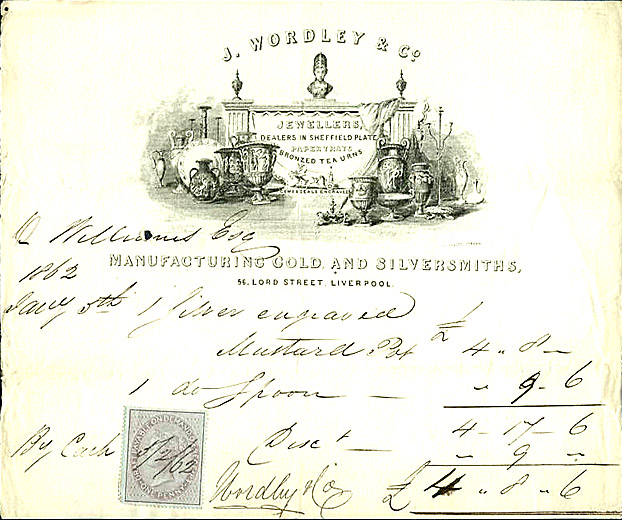 J. WORDLEY & Co
JEWELLERS,
DEALERS IN SHEFFIELD PLATE
PAPER TRAYS
BRONZED TEA URNS
GEMS & SEALS ENGRAVED
Williams Esq
MANUFACTURING GOLD, AND SILVERSMITHS,
56, LORD STREET, LIVERPOOL.
1862
Jany 5th 1 Silver engraved
Mustard Pot 4 " 8 -
1 do Spoon — " 9 - 6
4 - 17 - 6
By Cash Disct — " 9 "
Wordley & Co £ 4 " 8 " 6
PAYABLE ON DEMAND
ONE PENNY
5/2/62